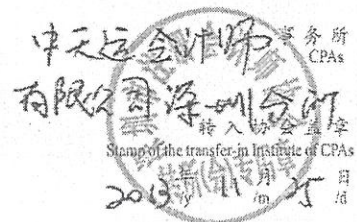 中天运会计师 事务所
CPAs
有限公司深圳分所
转入协会盖章
Stamp of the transfer-in Institute of CPAs
2013 /y 11 月 /m 25 日 /d